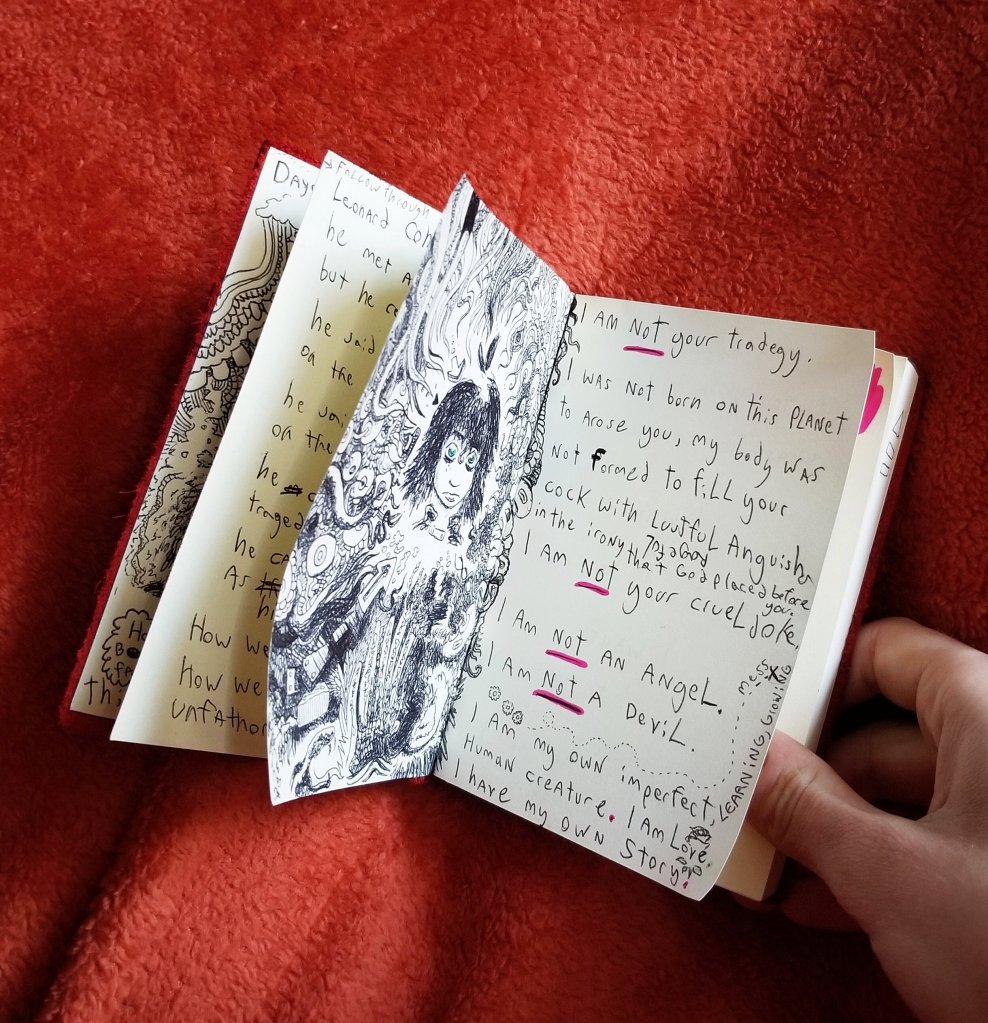 Days
→ Follow through
Leonard Coh
he met a
but he ca
he said
on the
he sai
on the
he c
traged
he ca
As
h
How we
How we
unfathom
Ho
Bo
fe
th
I AM NOT your tradegy.
I was not born on this PLANET
to arose you, my body was
not formed to fiLL your
cock with Lustful Anguish
in the irony that God placed before
you.
I am not your crueL joke.
I Am not AN AngeL.
I am Not A DeviL.
I Am my own imperfect,
messy
LEARNING, GROWING
Human creature. I Am Love.
I have my own Story.